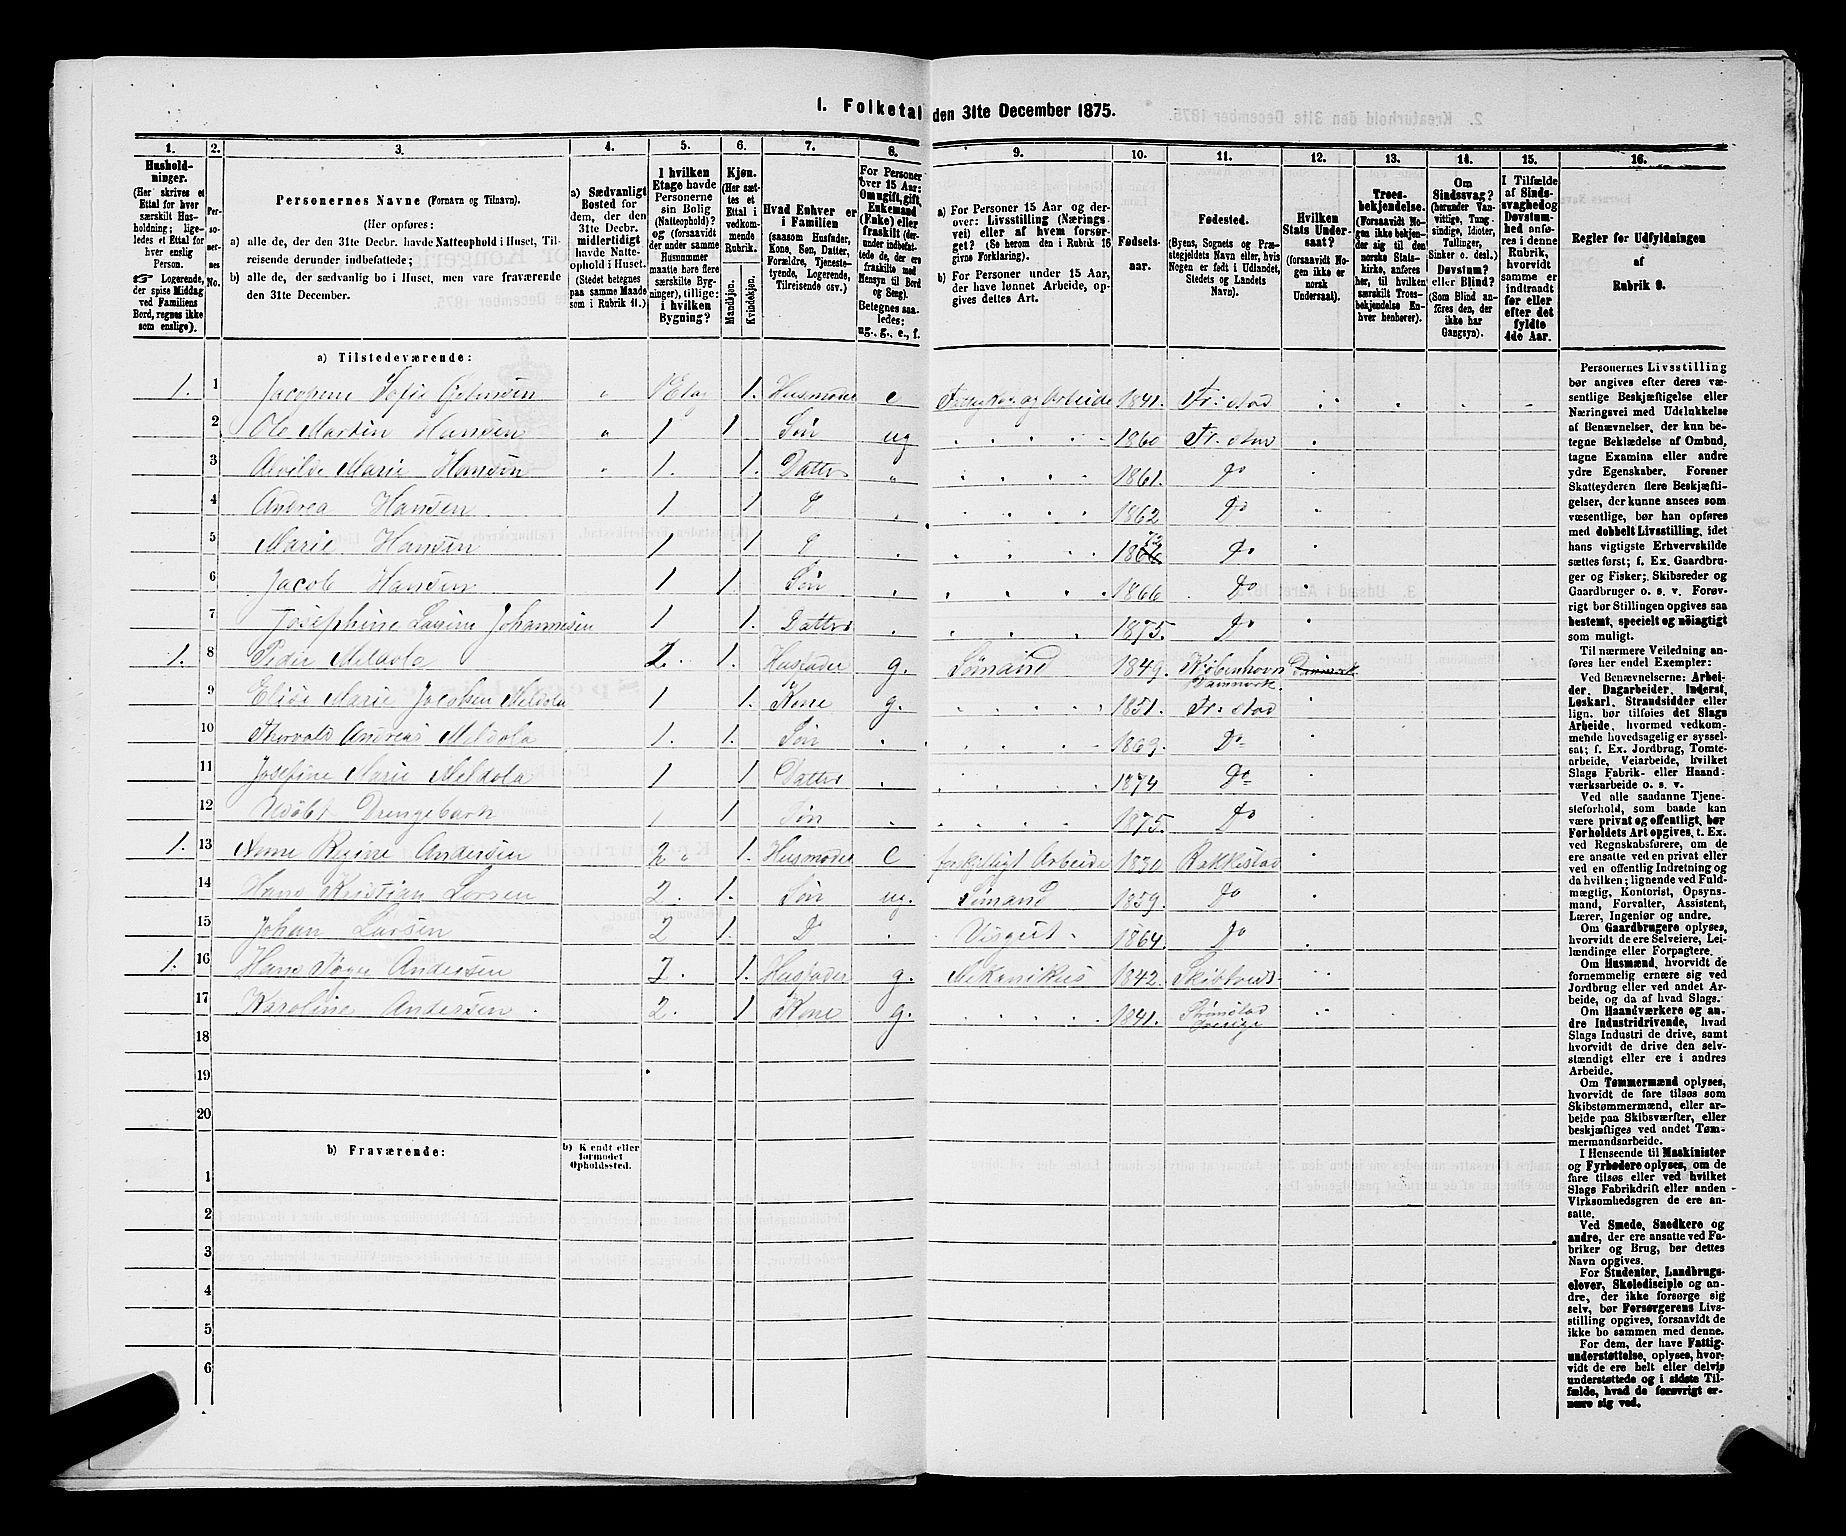 1. Folketal den 31te December 1875.
1.
Hushold-
ninger.
(Her skrives et
Ettal for hver
særskilt Hus-
holdning; lige-
ledes et Ettal for
hver enslig
Person.
☞ Logerende,
der spise Middag
ved Familiens
Bord, regnes ikke
som enslige).
2.
Per-
so-
ner-
nes
No.
3.
Personernes Navne (Fornavn og Tilnavn).
(Her opføres:
a) alle de, der den 31te Decbr. havde Natteophold i Huset, Til-
reisende derunder indbefattede;
b) alle de, der sædvanlig bo i Huset, men vare fraværende
den 31te December.
4.
a) Sædvanligt
Bosted for
dem, der den
31te Decbr.
midlertidigt
havde Natte-
ophold i Huset.
(Stedet betegnes
paa samme Maade
som i Rubrik 11.)
5.
I hvilken
Etage havde
Personerne
sin Bolig
(Natteophold)?
og (forsaavidt
der under samme
Husnummer
maatte høre flere
særskilte Byg-
ninger), tillige:
i hvilken
Bygning?
6.
Kjøn.
(Her sæt-
tes et
Ettal i
vedkom-
mende
Rubrik.
Mandkjøn.
Kvindekjøn.
7.
Hvad Enhver er
i Familien
(saasom Husfader,
Kone, Søn, Datter,
Forældre, Tjeneste-
tyende, Logerende,
Tilreisende osv.)
8.
For Personer
over 15 Aar:
Om ugift, gift,
Enkemand
(Enke) eller
fraskilt (der-
under indbefat-
tede de, der ere
fraskilte med
Hensyn til Bord
og Seng).
Betegnes saa-
ledes:
ug., g., e., f.
9.
a) For Personer 15 Aar og der-
over: Livsstilling (Nærings-
vei) eller af hvem forsør-
get? (Se herom den i Rubrik 16
givne Forklaring).
b) For Personer under 15 Aar,
der have lønnet Arbeide, op-
gives dettes Art.
10.
Fødsels-
aar.
11.
Fødested.
(Byens, Sognets og Præ-
stegjeldets Navn, eller, hvis
Nogen er født i Udlandet,
Stedets og Landets
Navn).
12.
Hvilken
Stats Under-
saat?
(forsaavidt No-
gen ikke er
norsk
Undersaat).
13.
Troes-
bekjendelse.
(Forsaavidt No-
gen ikke bekjen-
der sig til den
norske Stats-
kirke, anføres
her, til hvilken
særskilt Troes-
bekjendelse En-
hver henhører).
14.
Om
Sindssvag?
(herunder Van-
vittige, Tung-
sindige, Idioter,
Tullinger,
Sinker o. desl.)
Døvstum?
eller Blind?
(Som Blind an-
føres den, der
ikke har
Gangsyn).
15.
I Tilfælde
af Sinds-
svaghed og
Døvstum-
hed anfø-
res i denne
Rubrik,
hvorvidt
samme er
indtraadt
før eller
efter det
fyldte
4de Aar.
16.
Regler for Udfyldningen
af
Rubrik 9.
a) Tilstedeværende:
1. 1 Jacobine Sofie 1 Etag 1. Husmoder e Arbeide 1841. Fr: stad
2 Ole Martin Hansen 1 1 Søn ug 1860 Fr. stad
3 Marie Hansen 1. 1. Datter 1861. Do
4 Andrea Hansen 1 1. D 1862 Do
5 Marie Hansen 1 1 D Do
6 Jacob Hansen 1 1. Søn 1866 Do
7 Josephine Johannesen 1 1. Datter 1875. Do
1. 8 Peder Meldola 2. 1. Husfader g. Sømand 1849. Kjøbenhavn Danmark
Danmark
9 Elise Marie Jacobsen Meldola 1 1. Kone g. 1851. Fr: stad
10 Thorvald Andreas Meldola 1. 1. Søn 1869. Do
11 Josefine Marie Meldola 1 1 Datter 1874 Do
12 Udøbt Drengebarn 1 1 Søn 1875. Do
1. 13 Anne Regine Andersen 2 1. Husmoder e forskjelligt Arbeide 1830 Rakkestad
14 Hans Kristian Larsen 2. 1. Søn ug. Sømand 1859. Do
15 Johan Larsen 2 1. D Visegut 1864. Do
1. 16 Hans Andersen 2. 1. Husfader g. Mekanikus 1842. Skibtvedt
17 Karoline Andersen 2. 1 Kone g. 1841. Strømstad
Sverige
18
19
20
b) Fraværende:
b) Kjendt eller
formodet
Opholdssted.
1
2
3
4
5
6
Personernes Livsstilling
bør angives efter deres væ-
sentlige Beskjæftigelse eller
Næringsvei med Udelukkelse
af Benævnelser, der kun be-
tegne Beklædelse af Ombud,
tagne Examina eller andre
ydre Egenskaber. Forener
Skatteyderen flere Beskjæfti-
gelser, der kunne ansees som
væsentlige, bør han opføres
med dobbelt Livsstilling, idet
hans vigtigste Erhvervskilde
sættes først; f. Ex. Gaardbru-
ger og Fisker; Skibsreder og
Gaardbruger o. s. v. Forøv-
rigt bør Stillingen opgives saa
bestemt, specielt og nøiagtigt
som muligt.
Til nærmere Veiledning an-
føres her endel Exempler:
Ved Benævnelserne: Arbei-
der, Dagarbeider, Inderst,
Løskarl, Strandsidder eller
lign. bør tilføies det Slags
Arbeide, hvormed vedkom-
mende hovedsagelig er syssel-
sat; f. Ex. Jordbrug, Tomte-
arbeide, Veiarbeide, hvilket
Slags Fabrik- eller Haand-
værksarbeide o. s. v.
Ved alle saadanne Tjene-
steforhold, som baade kan
være privat og offentligt, bør
Forholdets Art opgives, t. Ex.
ved Regnskabsførere, om de
ere ansatte ved en privat eller
ved en offentlig Indretning og
da hvilken; lignende ved Fuld-
mægtig, Kontorist, Opsyns-
mand, Forvalter, Assistent,
Lærer, Ingeniør og andre.
Om Gaardbrugere oplyses,
hvorvidt de ere Selveiere, Lei-
lændinge eller Forpagtere.
Om Husmænd, hvorvidt de
fornemmelig ernære sig ved
Jordbrug eller ved andet Ar-
beide, og da af hvad Slags.
Om Haandværkere og an-
dre Industridrivende, hvad
Slags Industri de drive, samt
hvorvidt de drive den selv-
stændigt eller ere i andres
Arbeide.
Om Tømmermænd oplyses,
hvorvidt de fare tilsøs som
Skibstømmermænd, eller ar-
beide paa Skibsværfter, eller
beskjæftiges ved andet Tøm-
mermandsarbeide.
I Henseende til Maskinister
og Fyrbødere oplyses, om de
fare tilsøs eller ved hvilket
Slags Fabrikdrift eller anden
Virksomhedsgren de ere an-
satte.
Ved Smede, Snedkere og
andre, der ere ansatte ved Fa-
briker og Brug, bør dettes
Navn opgives.
For Studenter, Landbrugs-
elever, Skoledisciple og an-
dre, der ikke forsørge sig
selv, bør Forsørgerens Livs-
stilling opgives, forsaavidt de
ikke bo sammen med denne.
For dem, der have Fattig-
understøttelse, oplyses, hvor-
vidt de ere helt eller delvis
understøttede og i sidste Til-
fælde, hvad de forøvrigt er-
nære sig ved.